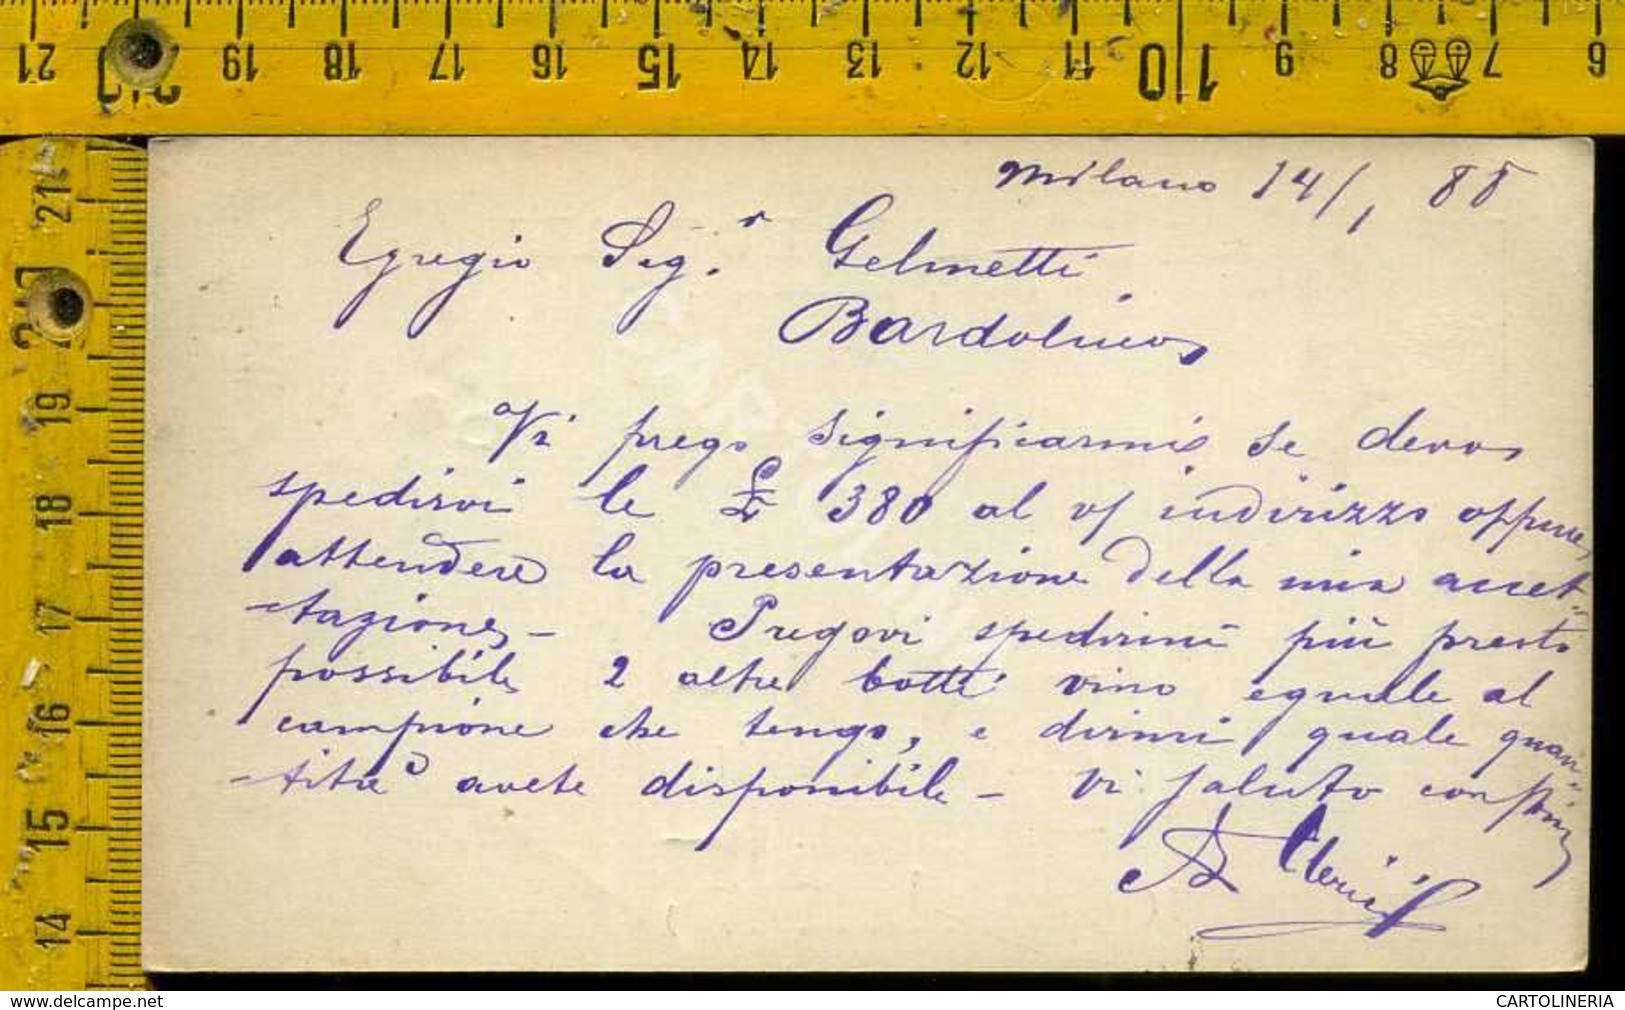 21 20 19 18 17 16 15 14 13 12 11 10 9 8 7 6
21
20
19
18
17
16
15
14
Milano 14/1 88
Egregio Sig.r Gelmetti
Bardolino
Vi prego significarmi se devo
spedirvi le £ 380 al v/ indirizzo oppure
attendere la presentazione della mia accet-
-tazione - Pregovi spedirmi più presto
possibile 2 altre botti vino eguale al
campione che tengo, e dirmi quale quan-
-tità avete disponibile - Vi saluto
A Clerici
www.delcampe.net
CARTOLINERIA